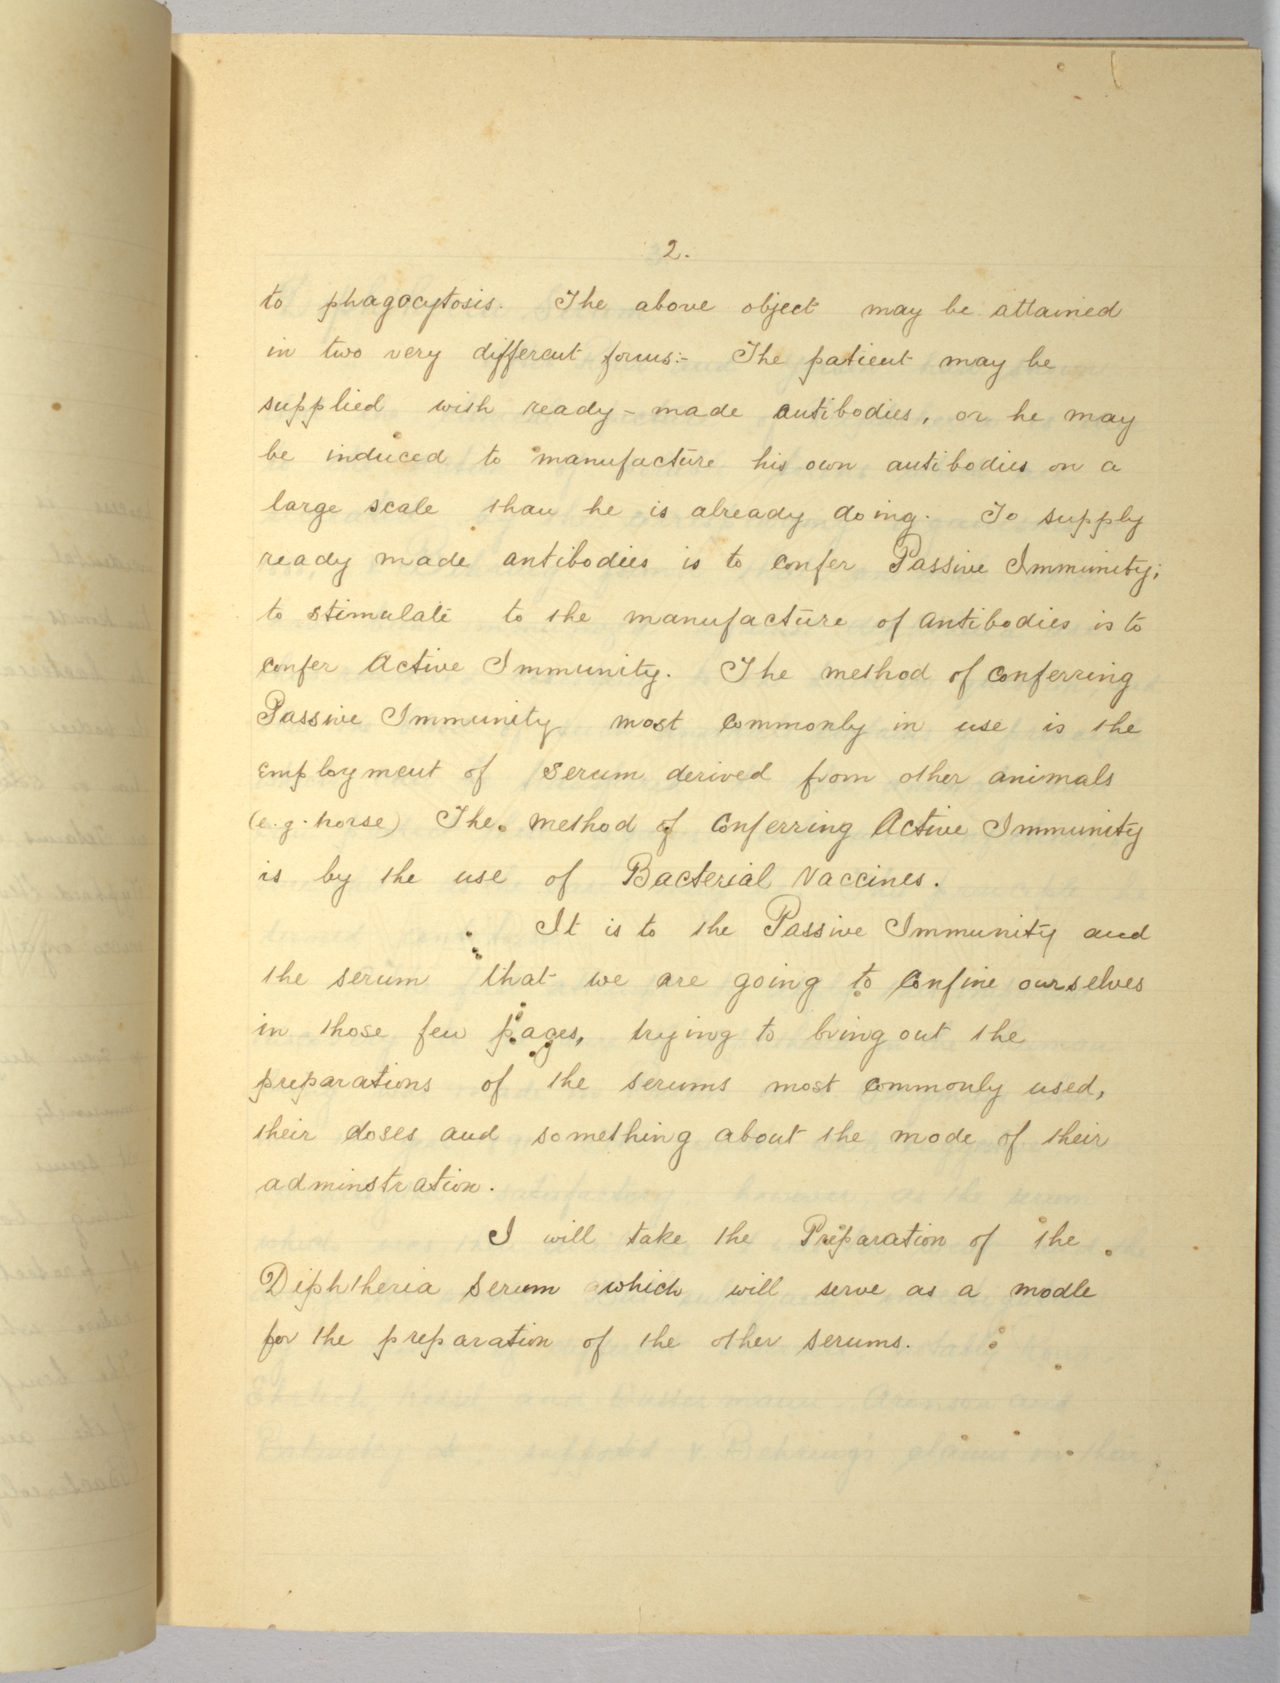 2.
to phagocytosis. The above object may be attained
in two very different forms:- The patient may be
supplied with ready-made antibodies, or he may
be induced to manufacture his own antibodies on a
large scale than he is already doing. To supply
ready made antibodies is to confer Passive Immunity;
to stimulate to the manufacture of antibodies is to
confer Active Immunity. The method of conferring
Passive Immunity most commonly in use is the
employment of serum derived from other animals
(e.g. horse) The method of Conferring Active Immunity
is by the use of Bacterial Vaccines.
It is to the Passive Immunity and
the serum that we are going to confine ourselves
in those few pages, trying to bring out the
preparations of the serums most commonly used,
their doses and something about the mode of their
adminstration.
I will take the Preparation of the
Diphtheria Serum which will serve as a modle
for the preparation of the other serums.